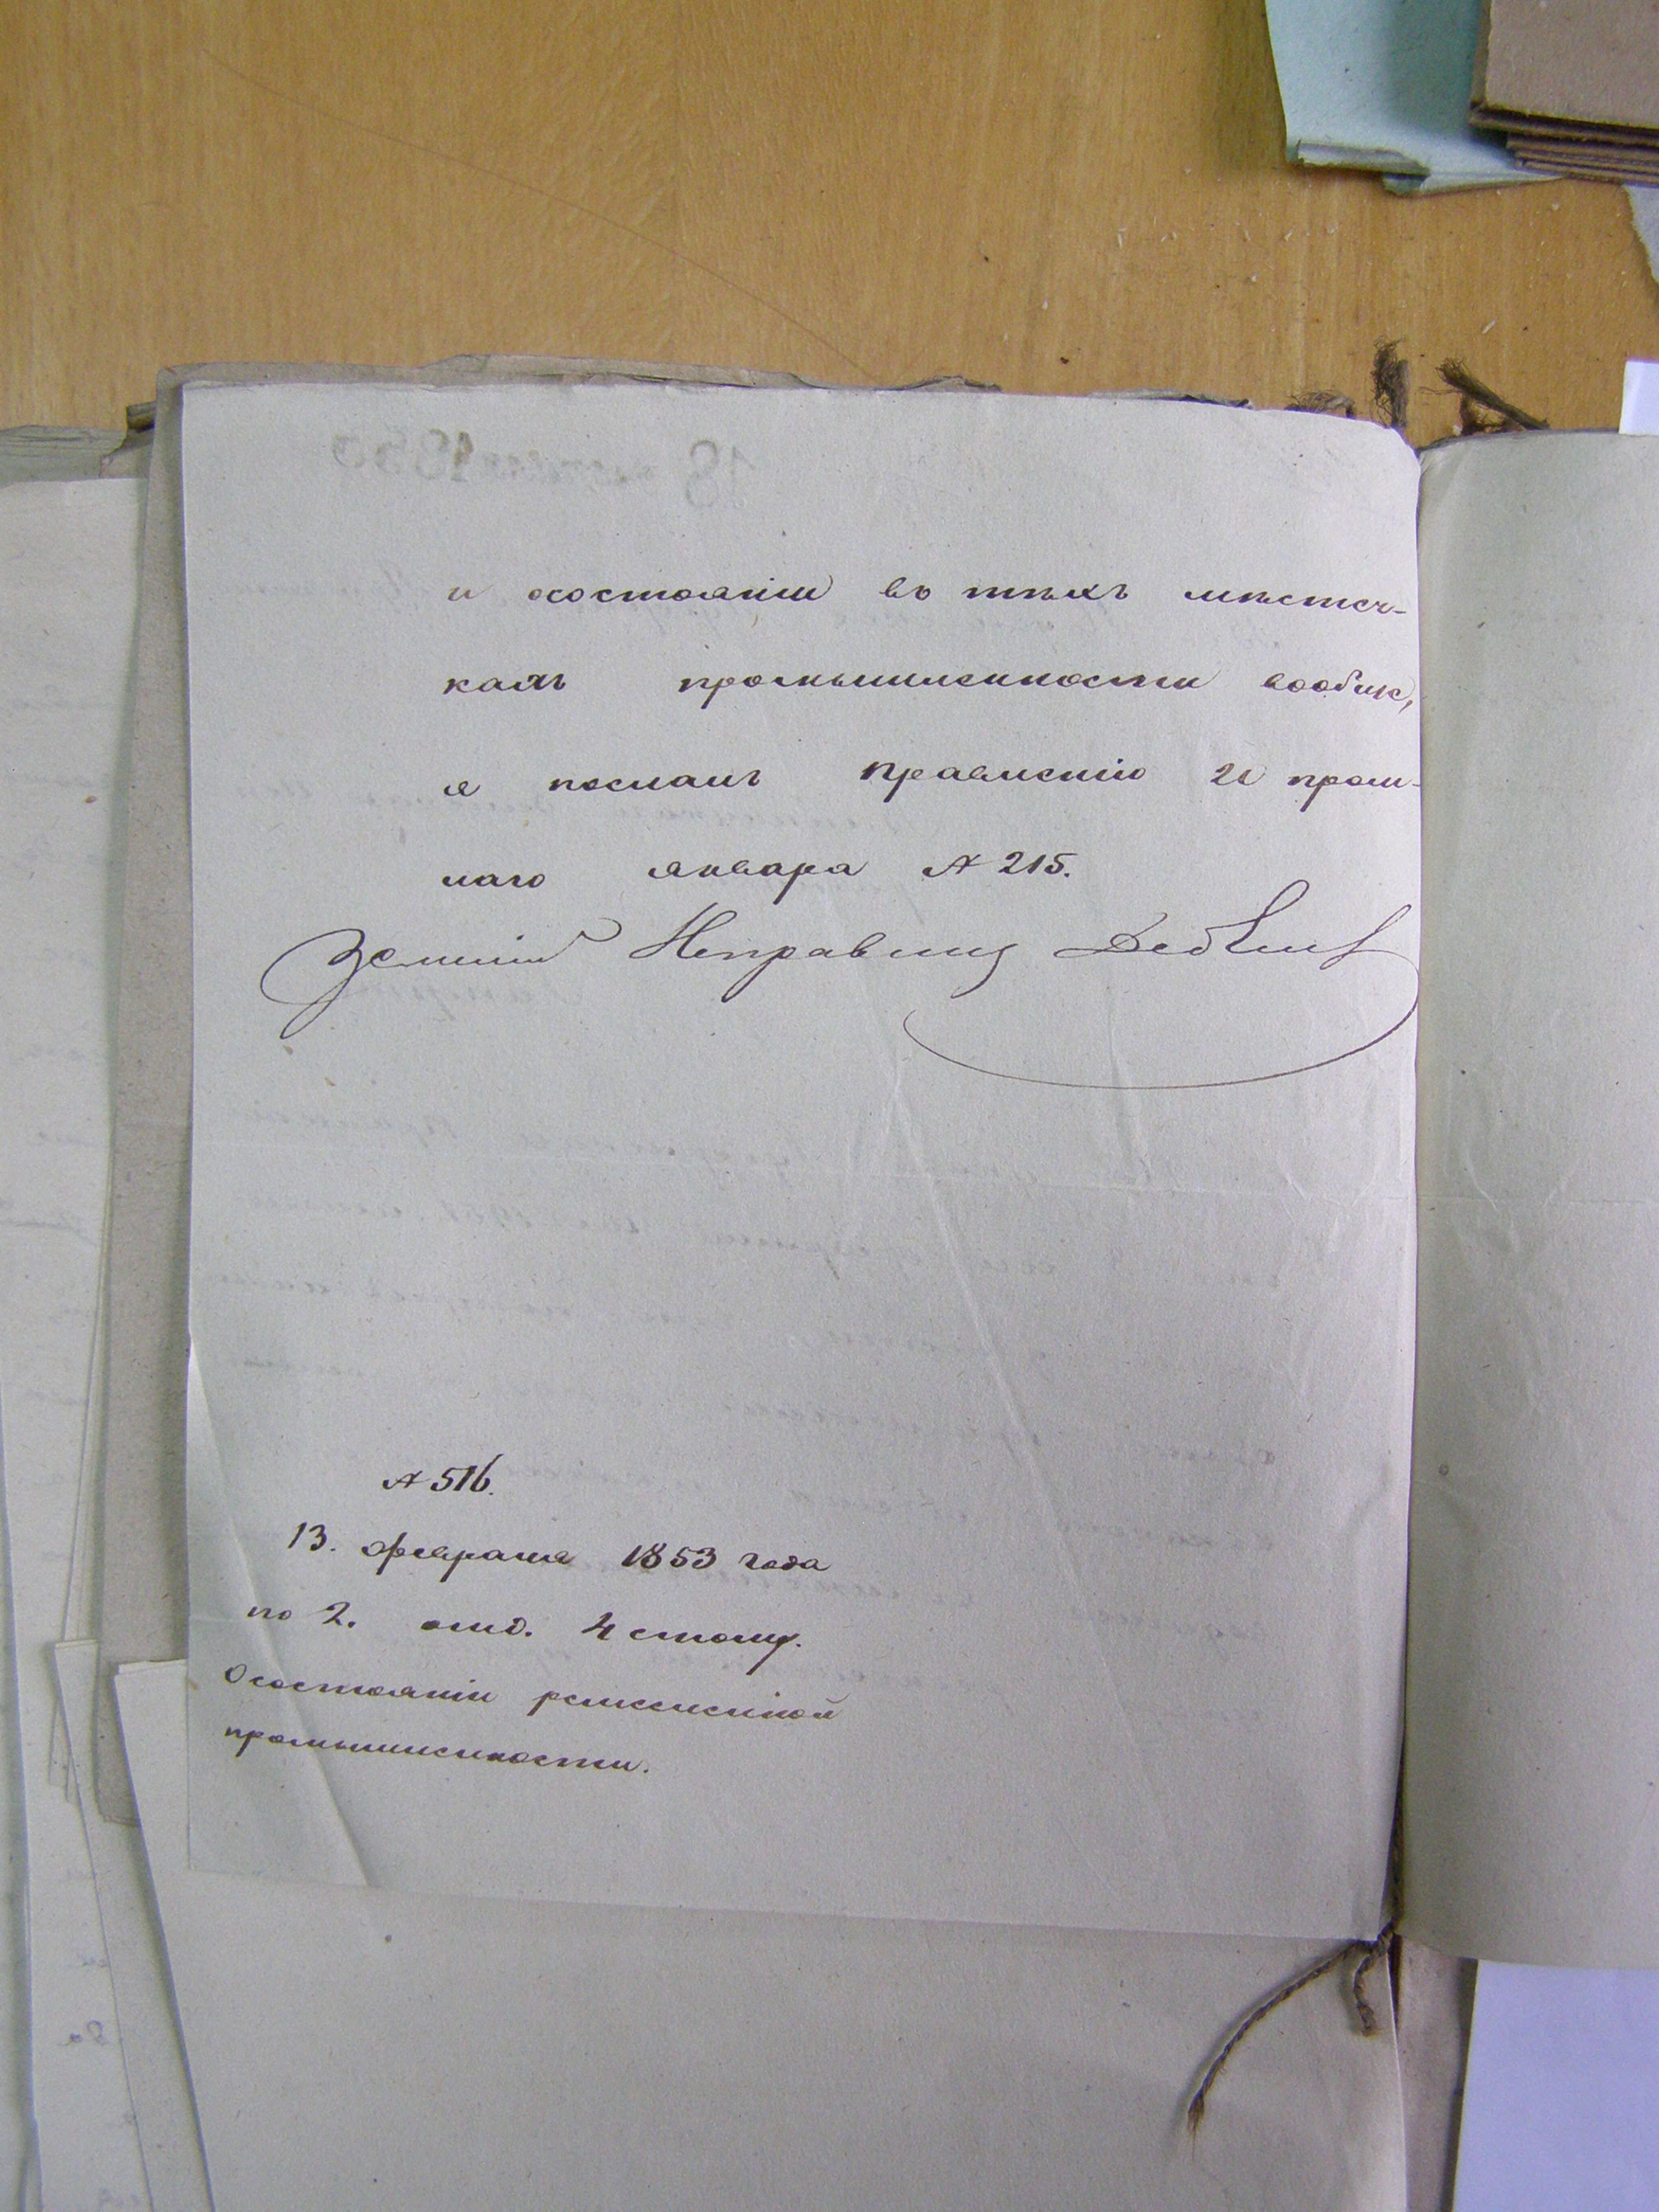 и осостояніи въ тѣхъ мѣстеч-
кахъ промышленности вообще,
а посланъ правленію 20 прош-
лаго января № 215.
Земскій Исправникъ
№ 516.
13. февраля 1853 года
по 2. отд. 4 столу.
Осостояніи ремесленной
промышленности.